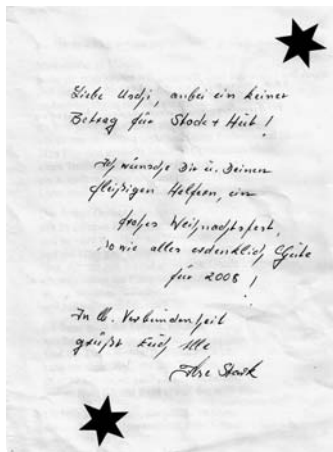 Liebe Uschi, anbei ein keiner
Betrag für Stock + Hut!
Ich wünsche Dir u. Deinen
fleißigen Helfern, ein
frohes Weihnachtsfest,
sowie alles erdenklich Gute
für 2008!
In lb. Verbundenheit
grüßt Euch Alle
Ilse Stark